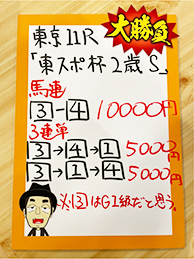 大勝負
東京11R
「東スポ杯2歳S」
馬連
3-4 10000円
3連単
3→4→1 5000円
3→1→4 5000円
※3はG1級だと思う。